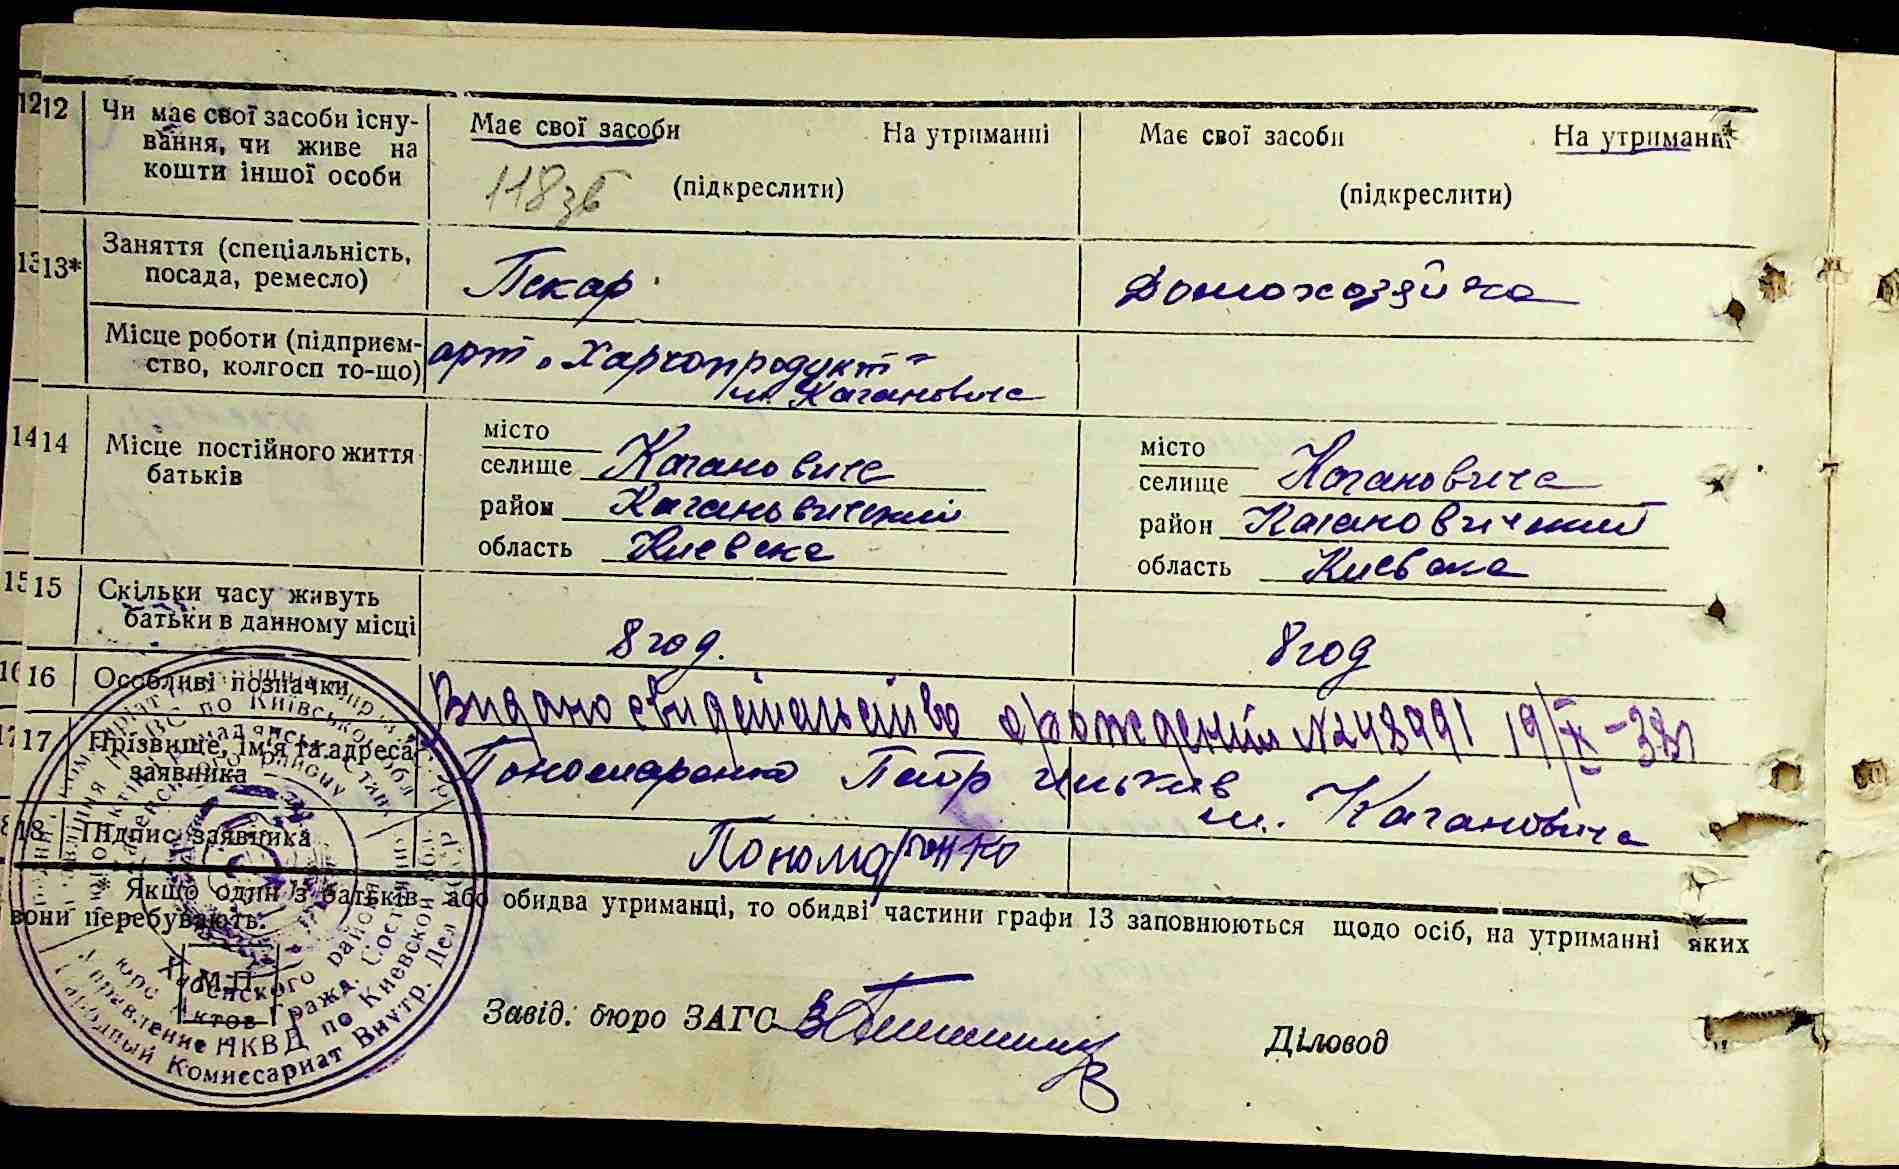 1212 Чи має свої засоби існу-
вання, чи живе на
кошти іншої особи
Має свої засоби На утриманні
118зв (підкреслити)
Має свої засоби На утриманні
(підкреслити)
1313* Заняття (спеціальність,
посада, ремесло)
Пекар
Домохозяйка
Місце роботи (підприєм-
ство, колгосп то-що)
арт "Харчопродукт"
м. Кагановича
1414 Місце постійного життя
батьків
місто
селище Кагановиче
район Кагановичский
область Киевска
місто
селище Кагановича
район Кагановичский
область Киевска
1515 Скільки часу живуть
батьки в данному місці
8 год.
8 год
16 Особливі позначки
Видано свидетельство о рождении № 248991 19/IX-38
17 Прізвище, ім'я та адреса
заявника
Пономаренко Петр
м. Кагановича
18 Підпис заявника
Пономаренко
Якщо один із батьків або обидва утриманці, то обидві частини графи 13 заповнюються щодо осіб, на утриманні яких
вони перебувають.
М.П.
Завід. бюро ЗАГС
Діловод
НКВС по Київській обл
Актов Гражд. Состояни
Управление НКВД по Киевской обл
Народный Комиссариат Внутр. Дел